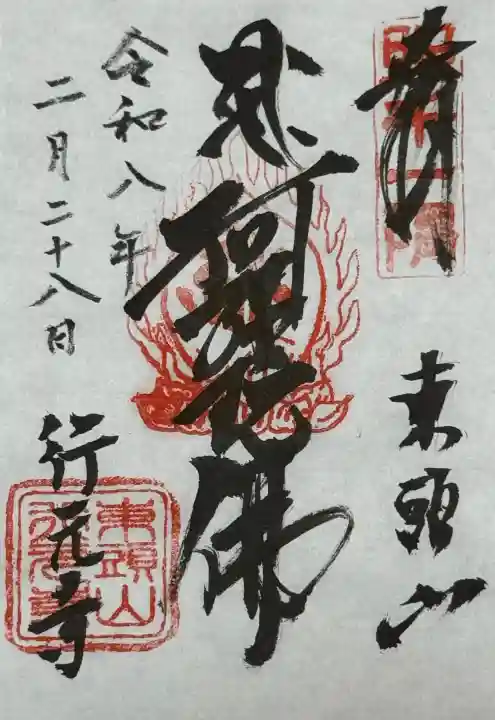 奉拝
東頭山
阿彌陀佛
令和八年
二月二十八日
行元寺
東頭山
行元寺